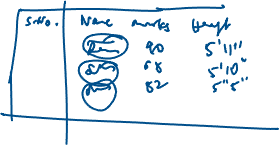 S.No. Name marks Height
90 5'11"
68 5'10"
82 5'5"